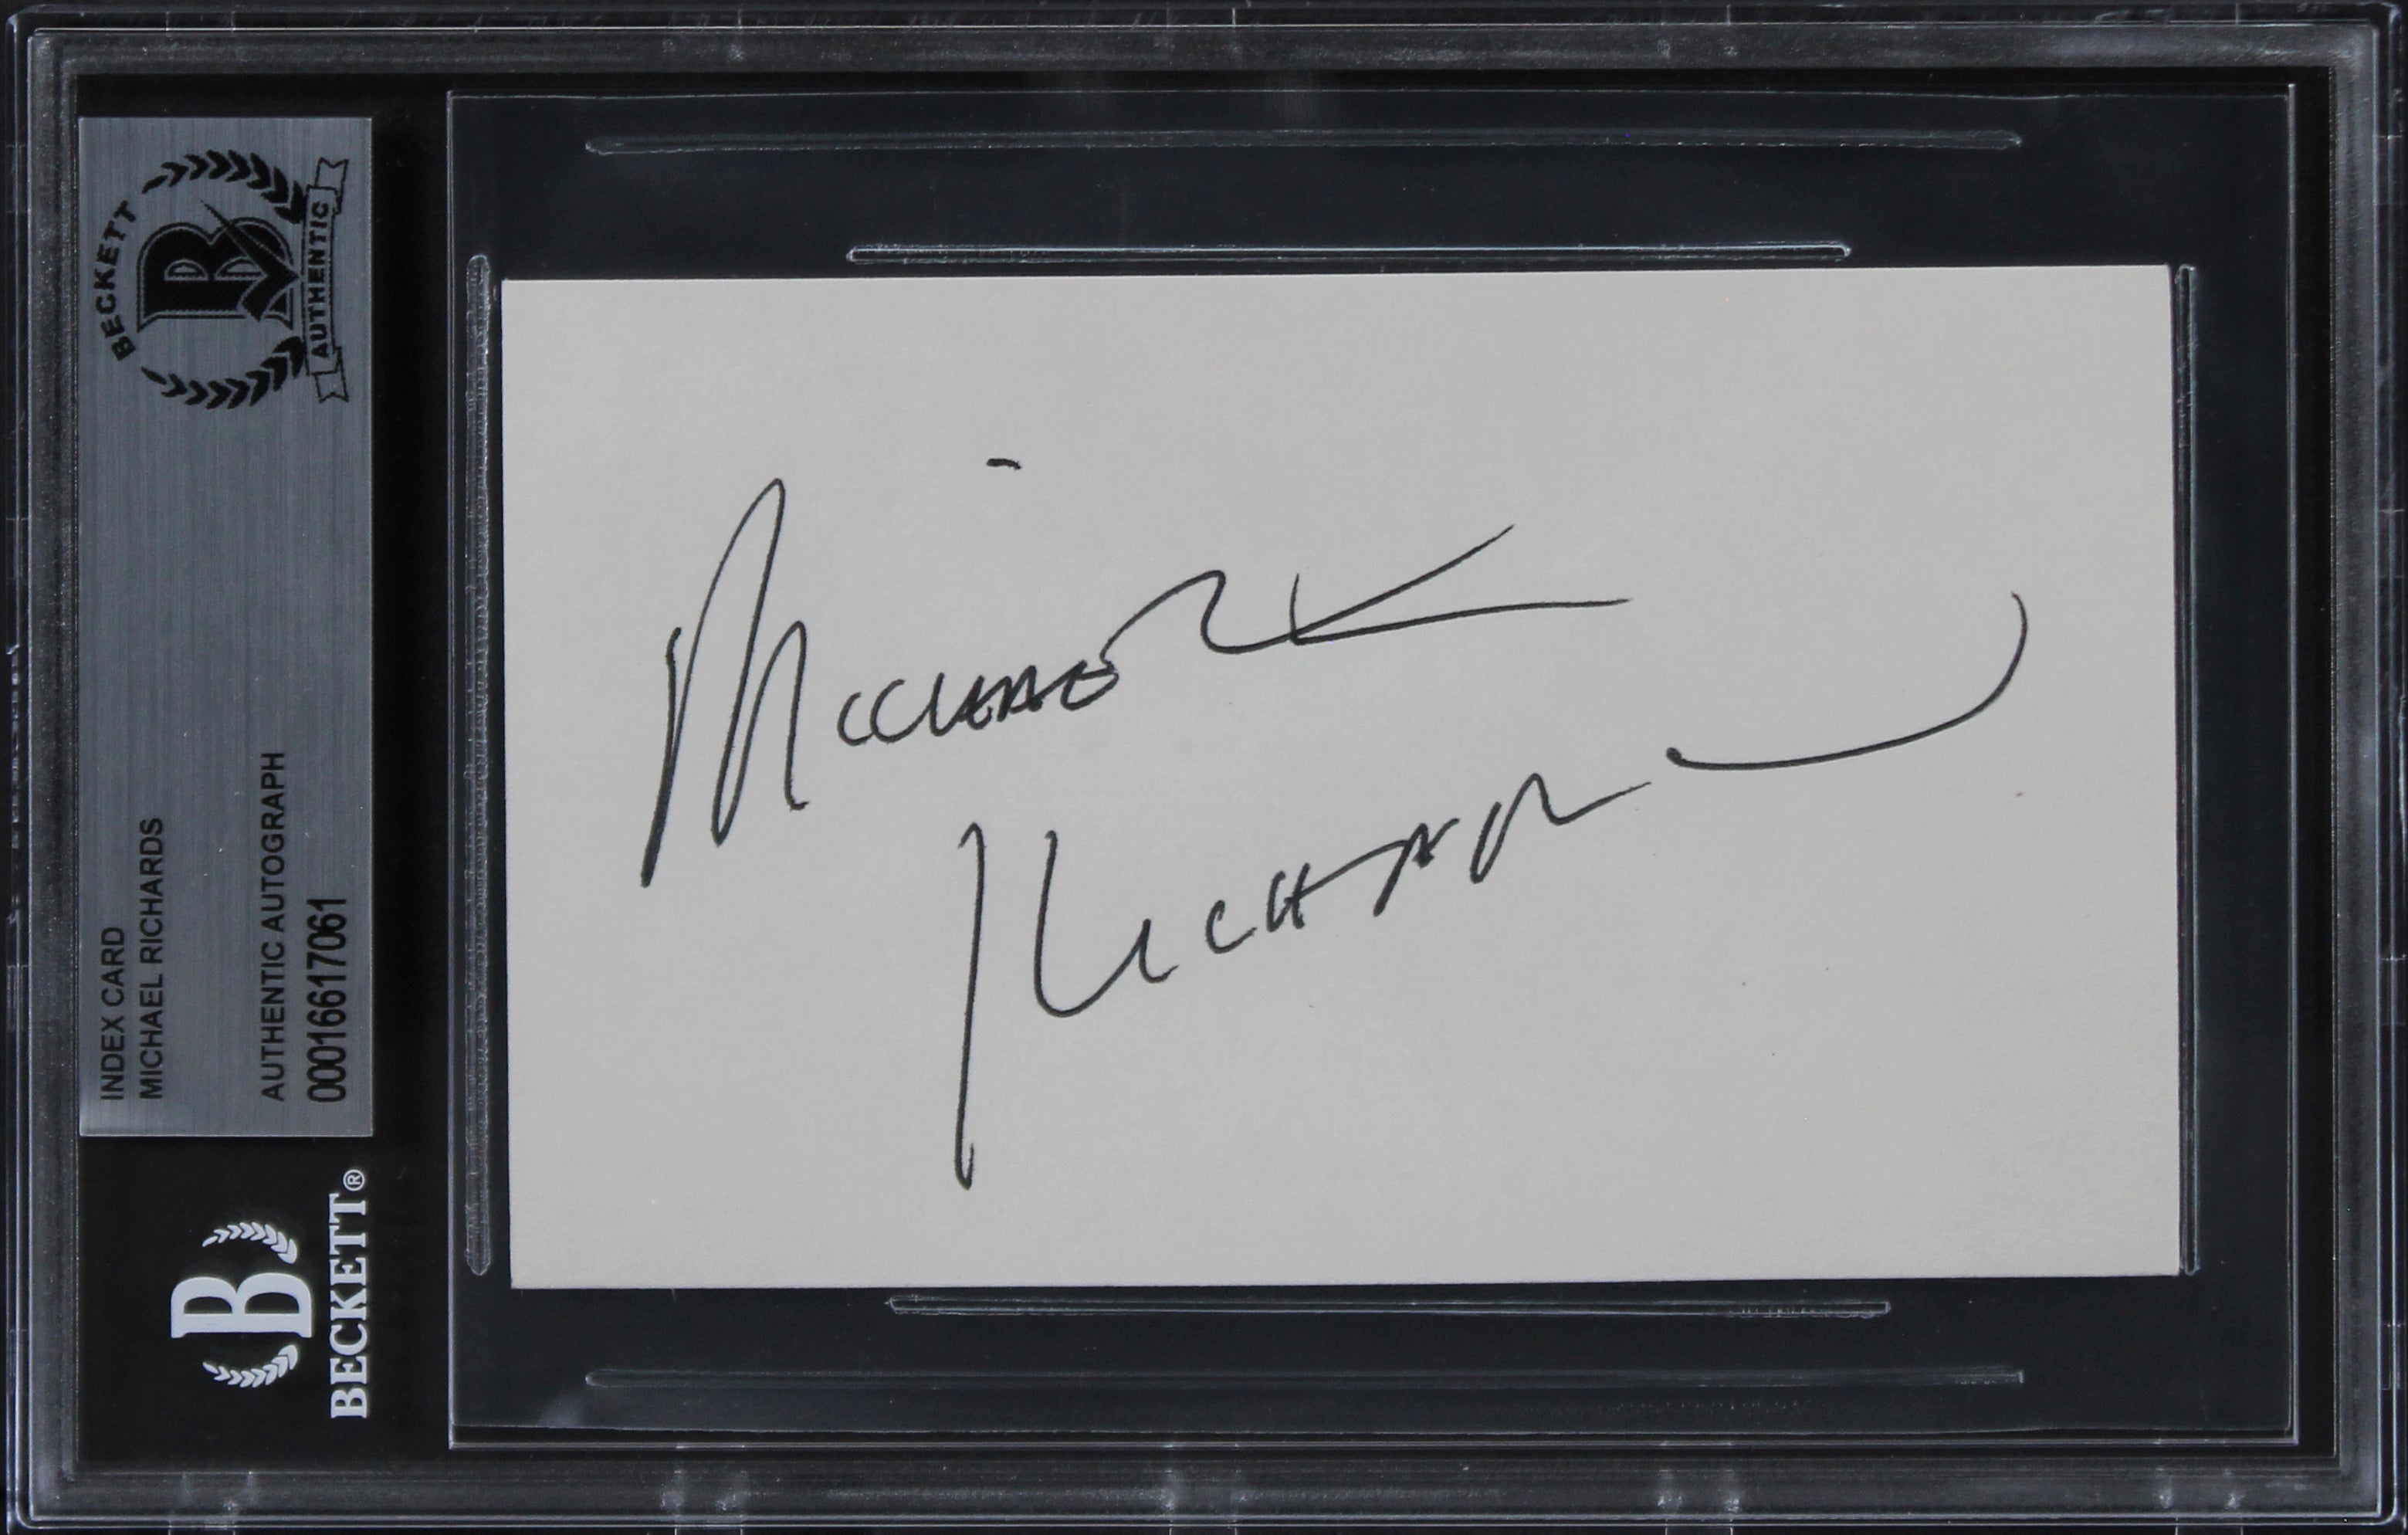 BECKETT
B
AUTHENTIC
INDEX CARD
MICHAEL RICHARDS
AUTHENTIC AUTOGRAPH
0001661706​1
B
BECKETT®
Michael
Richards